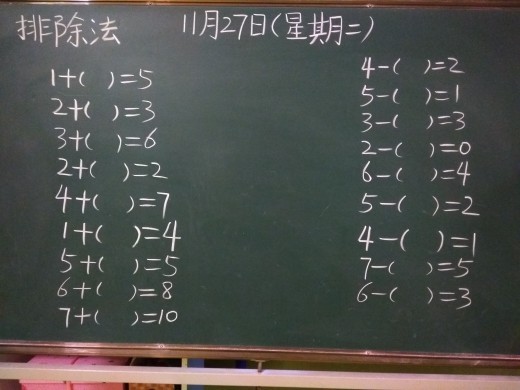 排除法 11月27日(星期二)
1+( )=5
2+( )=3
3+( )=6
2+( )=2
4+( )=7
1+( )=4
5+( )=5
6+( )=8
7+( )=10
4-( )=2
5-( )=1
3-( )=3
2-( )=0
6-( )=4
5-( )=2
4-( )=1
7-( )=5
6-( )=3